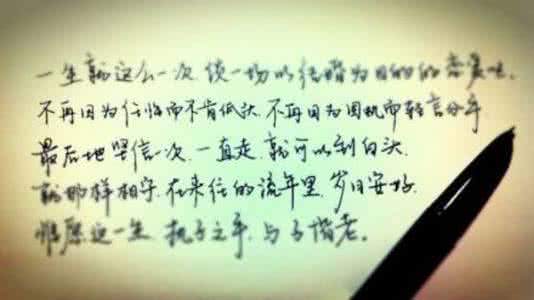 一生就这么一次，谈一场以结婚为目的的恋爱吧，
不再因为任性而不肯低头，不再因为固执而轻言分手
最后地坚信一次，一直走，就可以到白头，
就那样相守，在来往的流年里，岁月安好，
惟愿这一生，执子之手，与子偕老。